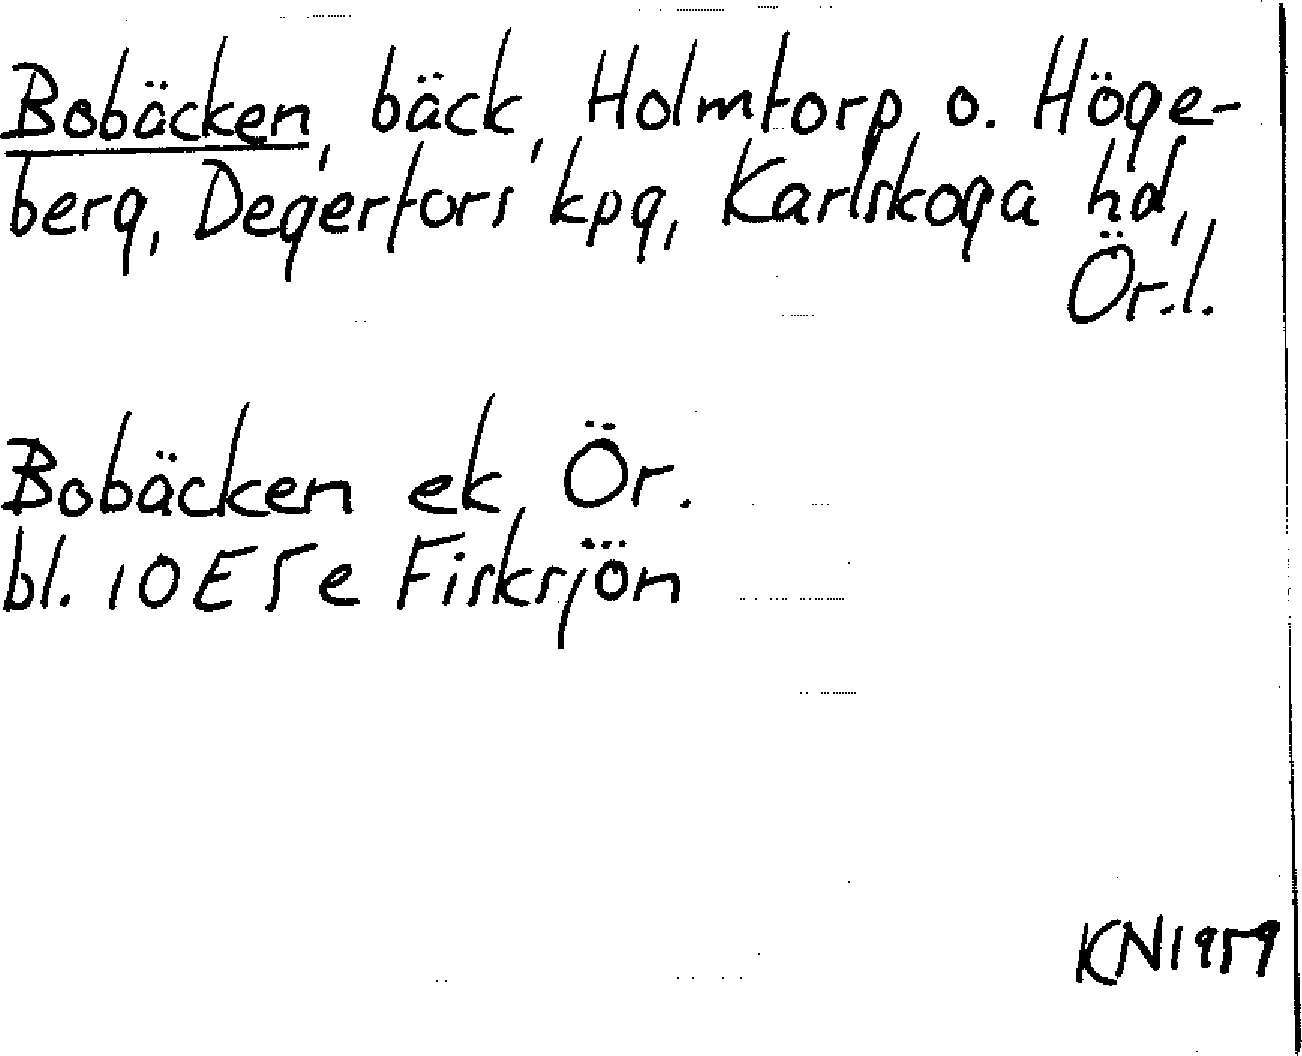 Bobäcken, bäck, Holmtorp o. Höge-
berg, Degerfors kpg, Karlskoga hd,
Ör.l.
Bobäcken ek Ör.
bl. 10E5e Fisksjön
KN1959